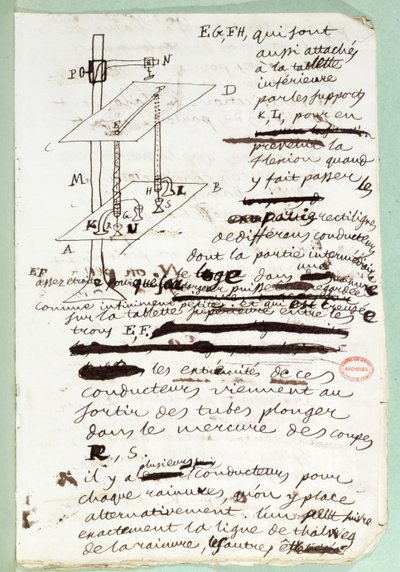 EG, FH, qui sont
aussi attachés
à la tablette
inférieure
par les supports
K, L, pour en
prévenir la
flexion quand
y fait passer les
parties rectilignes
de différens conducteurs
dont la partie intermédiaire
se loge dans une rainure
EF
assez étroite pour que sa
puisse regardée
comme infiniment petite, et qui est creusée
sur la tablette supérieure entre les
trous E, F,
les extrémités de ces
conducteurs viennent au
sortir des tubes plonger
dans le mercure des coupes
R, S.
il y a plusieurs conducteurs pour
chaque rainure, on y place
alternativement. l'un suivre
exactement la ligne de thalweg
de la rainure, les autres
P O N
D
C
E F
M
H L B
K R G S
A
ARCHIVES